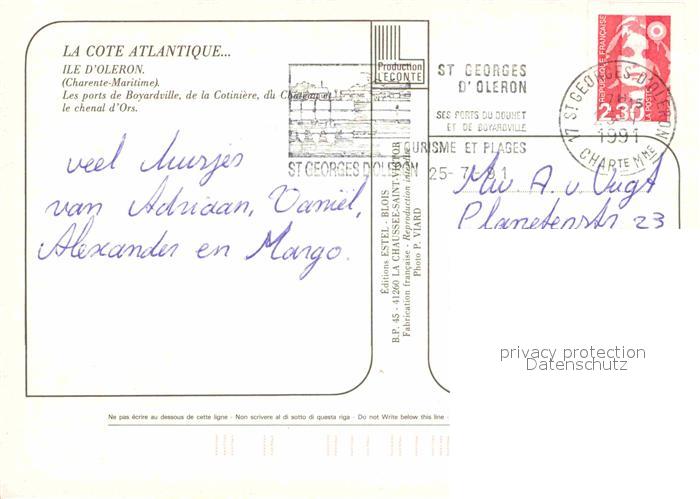 LA COTE ATLANTIQUE...
ILE D'OLERON.
(Charente-Maritime).
Les ports de Boyardville, de la Cotinière, du Château et
le chenal d'Ors.
veel kusjes
van Adriaan, Daniël,
Alexander en Margo.
Production
LECONTE
ST GEORGES
D'OLERON
SES PORTS DU DOUHET
ET DE BOYARDVILLE
TOURISME ET PLAGES
ST GEORGES D'OLERON 25-7-91
17 ST GEORGES D'OLERON
1991
CHARTE MME
REPUBLIQUE FRANÇAISE
LA POSTE
2,30
Mw A. v. Vugt
Planetenstr 23
Éditions ESTEL - BLOIS
B.P. 45 - 41260 LA CHAUSSÉE-SAINT-VICTOR
Fabrication française - Reproduction interdite
Photo P. VIARD
privacy protection
Datenschutz
Ne pas écrire au dessous de cette ligne - Non scrivere al di sotto di questa riga - Do not Write below this line -